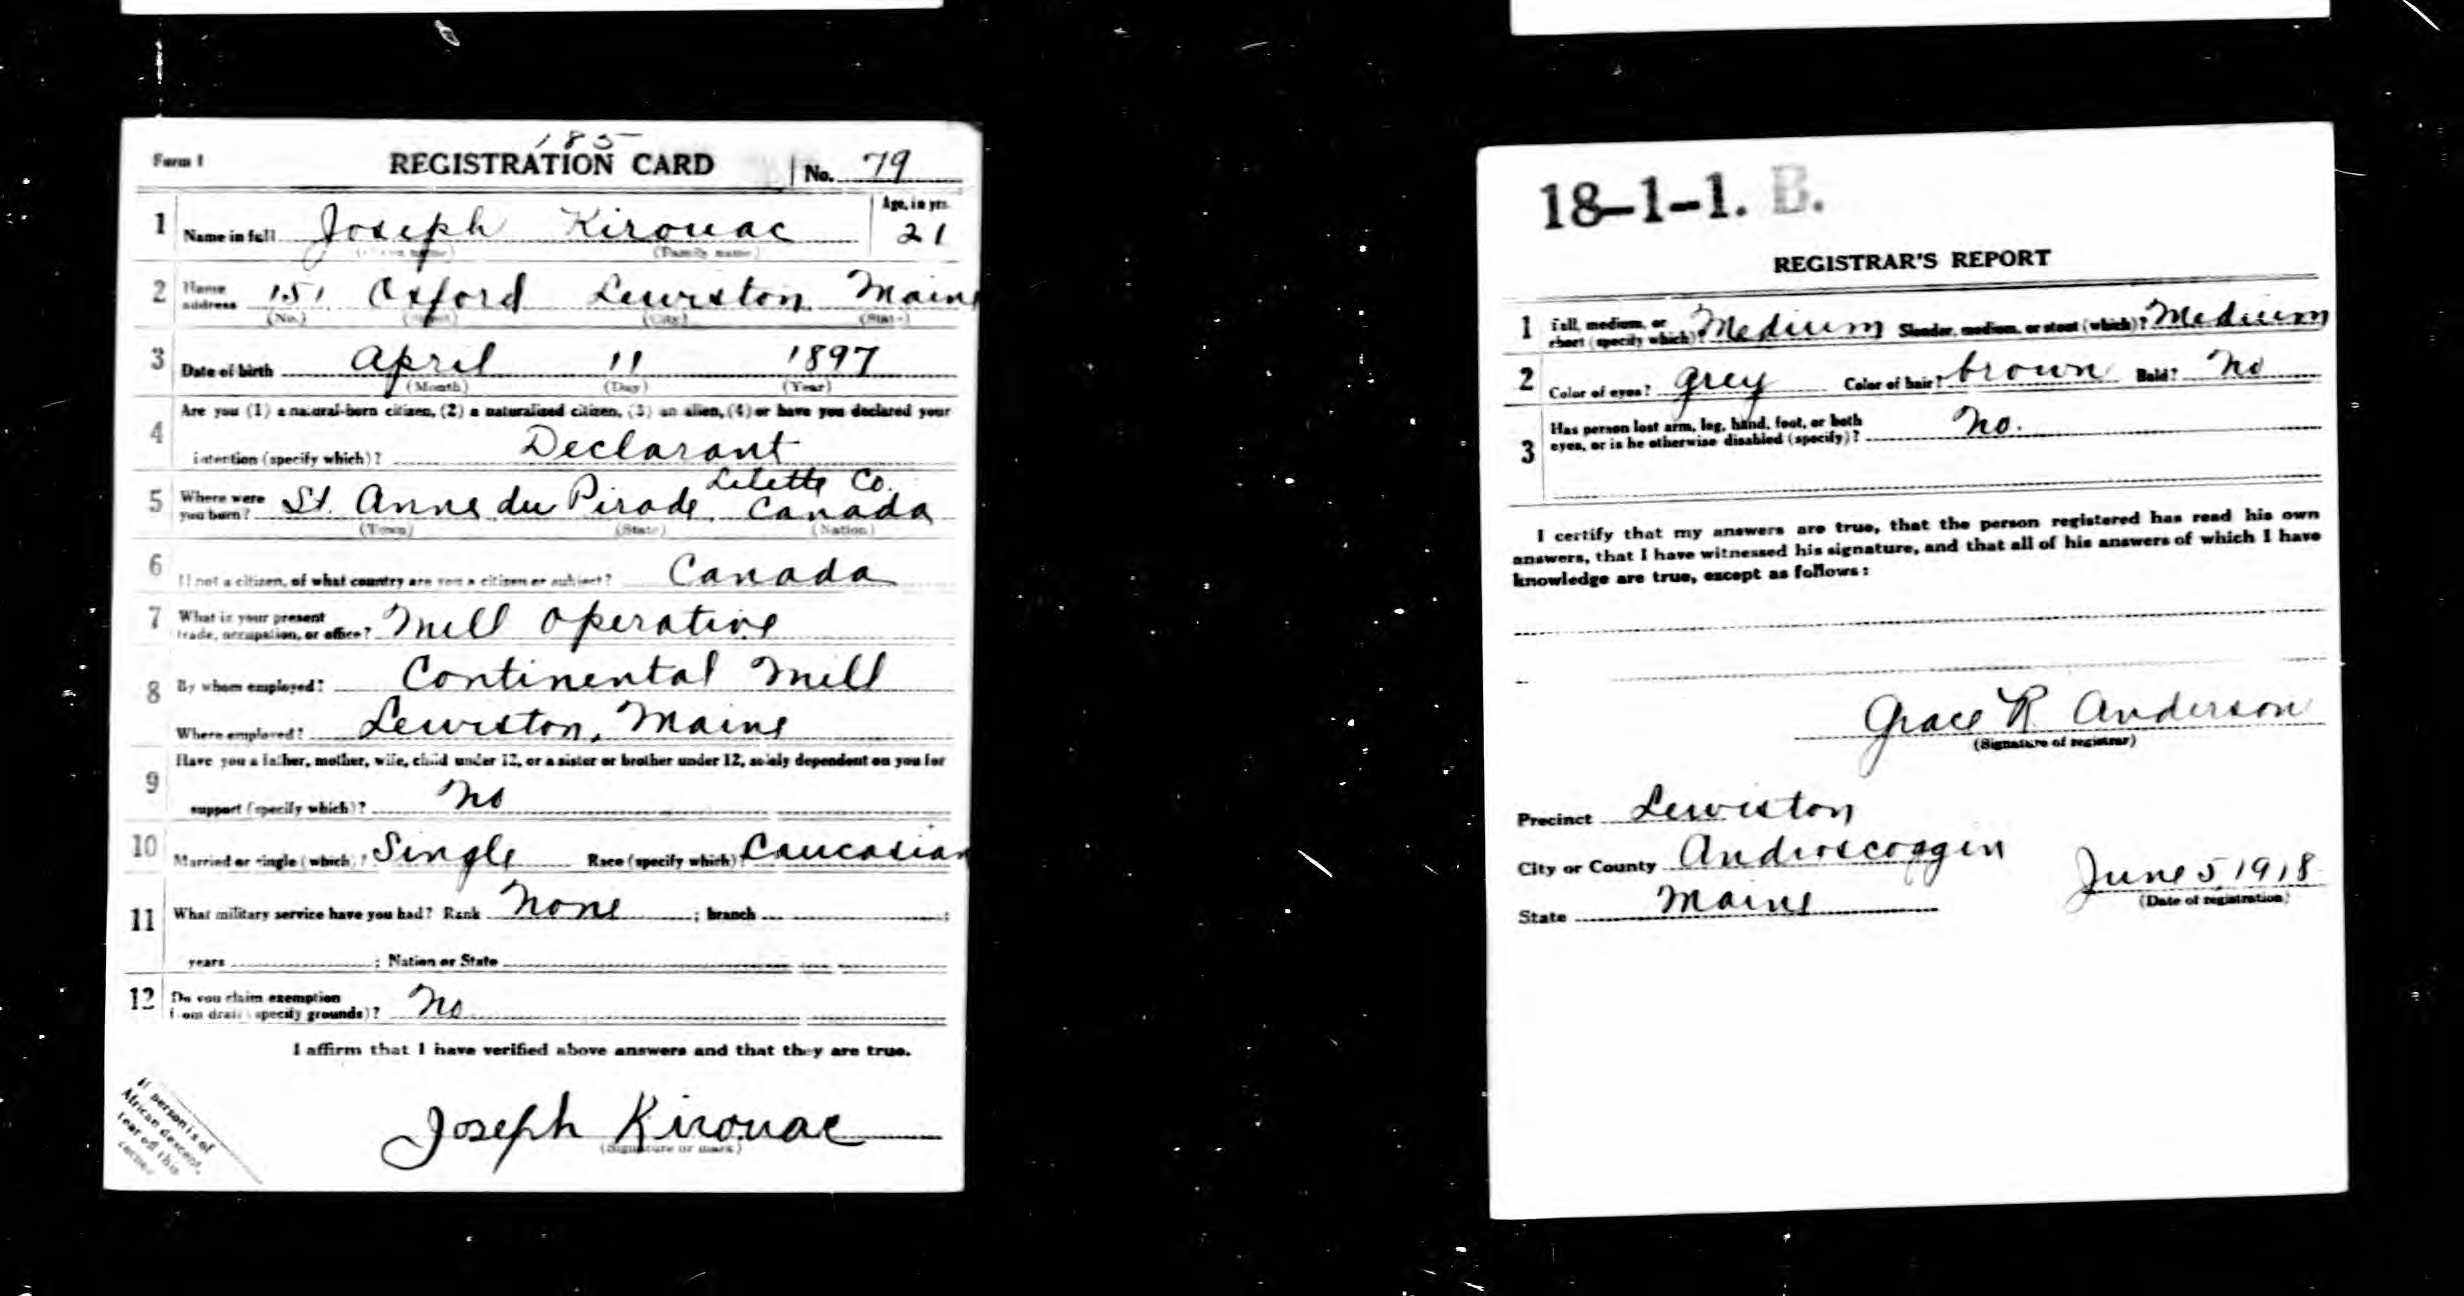 185
Form 1 REGISTRATION CARD No. 79
1 Name in full Joseph Kirouac Age, in yrs. 21
(Given name) (Family name)
2 Home address 151 Oxford Lewiston Maine
(No.) (Street) (City) (State)
3 Date of birth April 11 1897
(Month) (Day) (Year)
4 Are you (1) a natural-born citizen, (2) a naturalized citizen, (3) an alien, (4) or have you declared your
intention (specify which)? Declarant
Lilette Co.
5 Where were you born? St. Anne du Pirade Canada
(Town) (State) (Nation)
6 If not a citizen, of what country are you a citizen or subject? Canada
7 What is your present trade, occupation, or office? Mill Operative
8 By whom employed? Continental Mill
Where employed? Lewiston, Maine
9 Have you a father, mother, wife, child under 12, or a sister or brother under 12, solely dependent on you for
support (specify which)? No
10 Married or single (which)? Single Race (specify which)? Caucasian
11 What military service have you had? Rank None ; branch ;
years ; Nation or State
12 Do you claim exemption from draft (specify grounds)? No
I affirm that I have verified above answers and that they are true.
Joseph Kirouac
(Signature or mark)
If person is of
African descent,
tear off this
corner
18-1-1. B.
REGISTRAR'S REPORT
1 Tall, medium, or short (specify which)? Medium Slender, medium, or stout (which)? Medium
2 Color of eyes? Grey Color of hair? brown Bald? No
3 Has person lost arm, leg, hand, foot, or both
eyes, or is he otherwise disabled (specify)? No.
I certify that my answers are true, that the person registered has read his own
answers, that I have witnessed his signature, and that all of his answers of which I have
knowledge are true, except as follows:
Grace R Anderson
(Signature of registrar)
Precinct Lewiston
City or County Androscoggin
State Maine
June 5, 1918
(Date of registration)